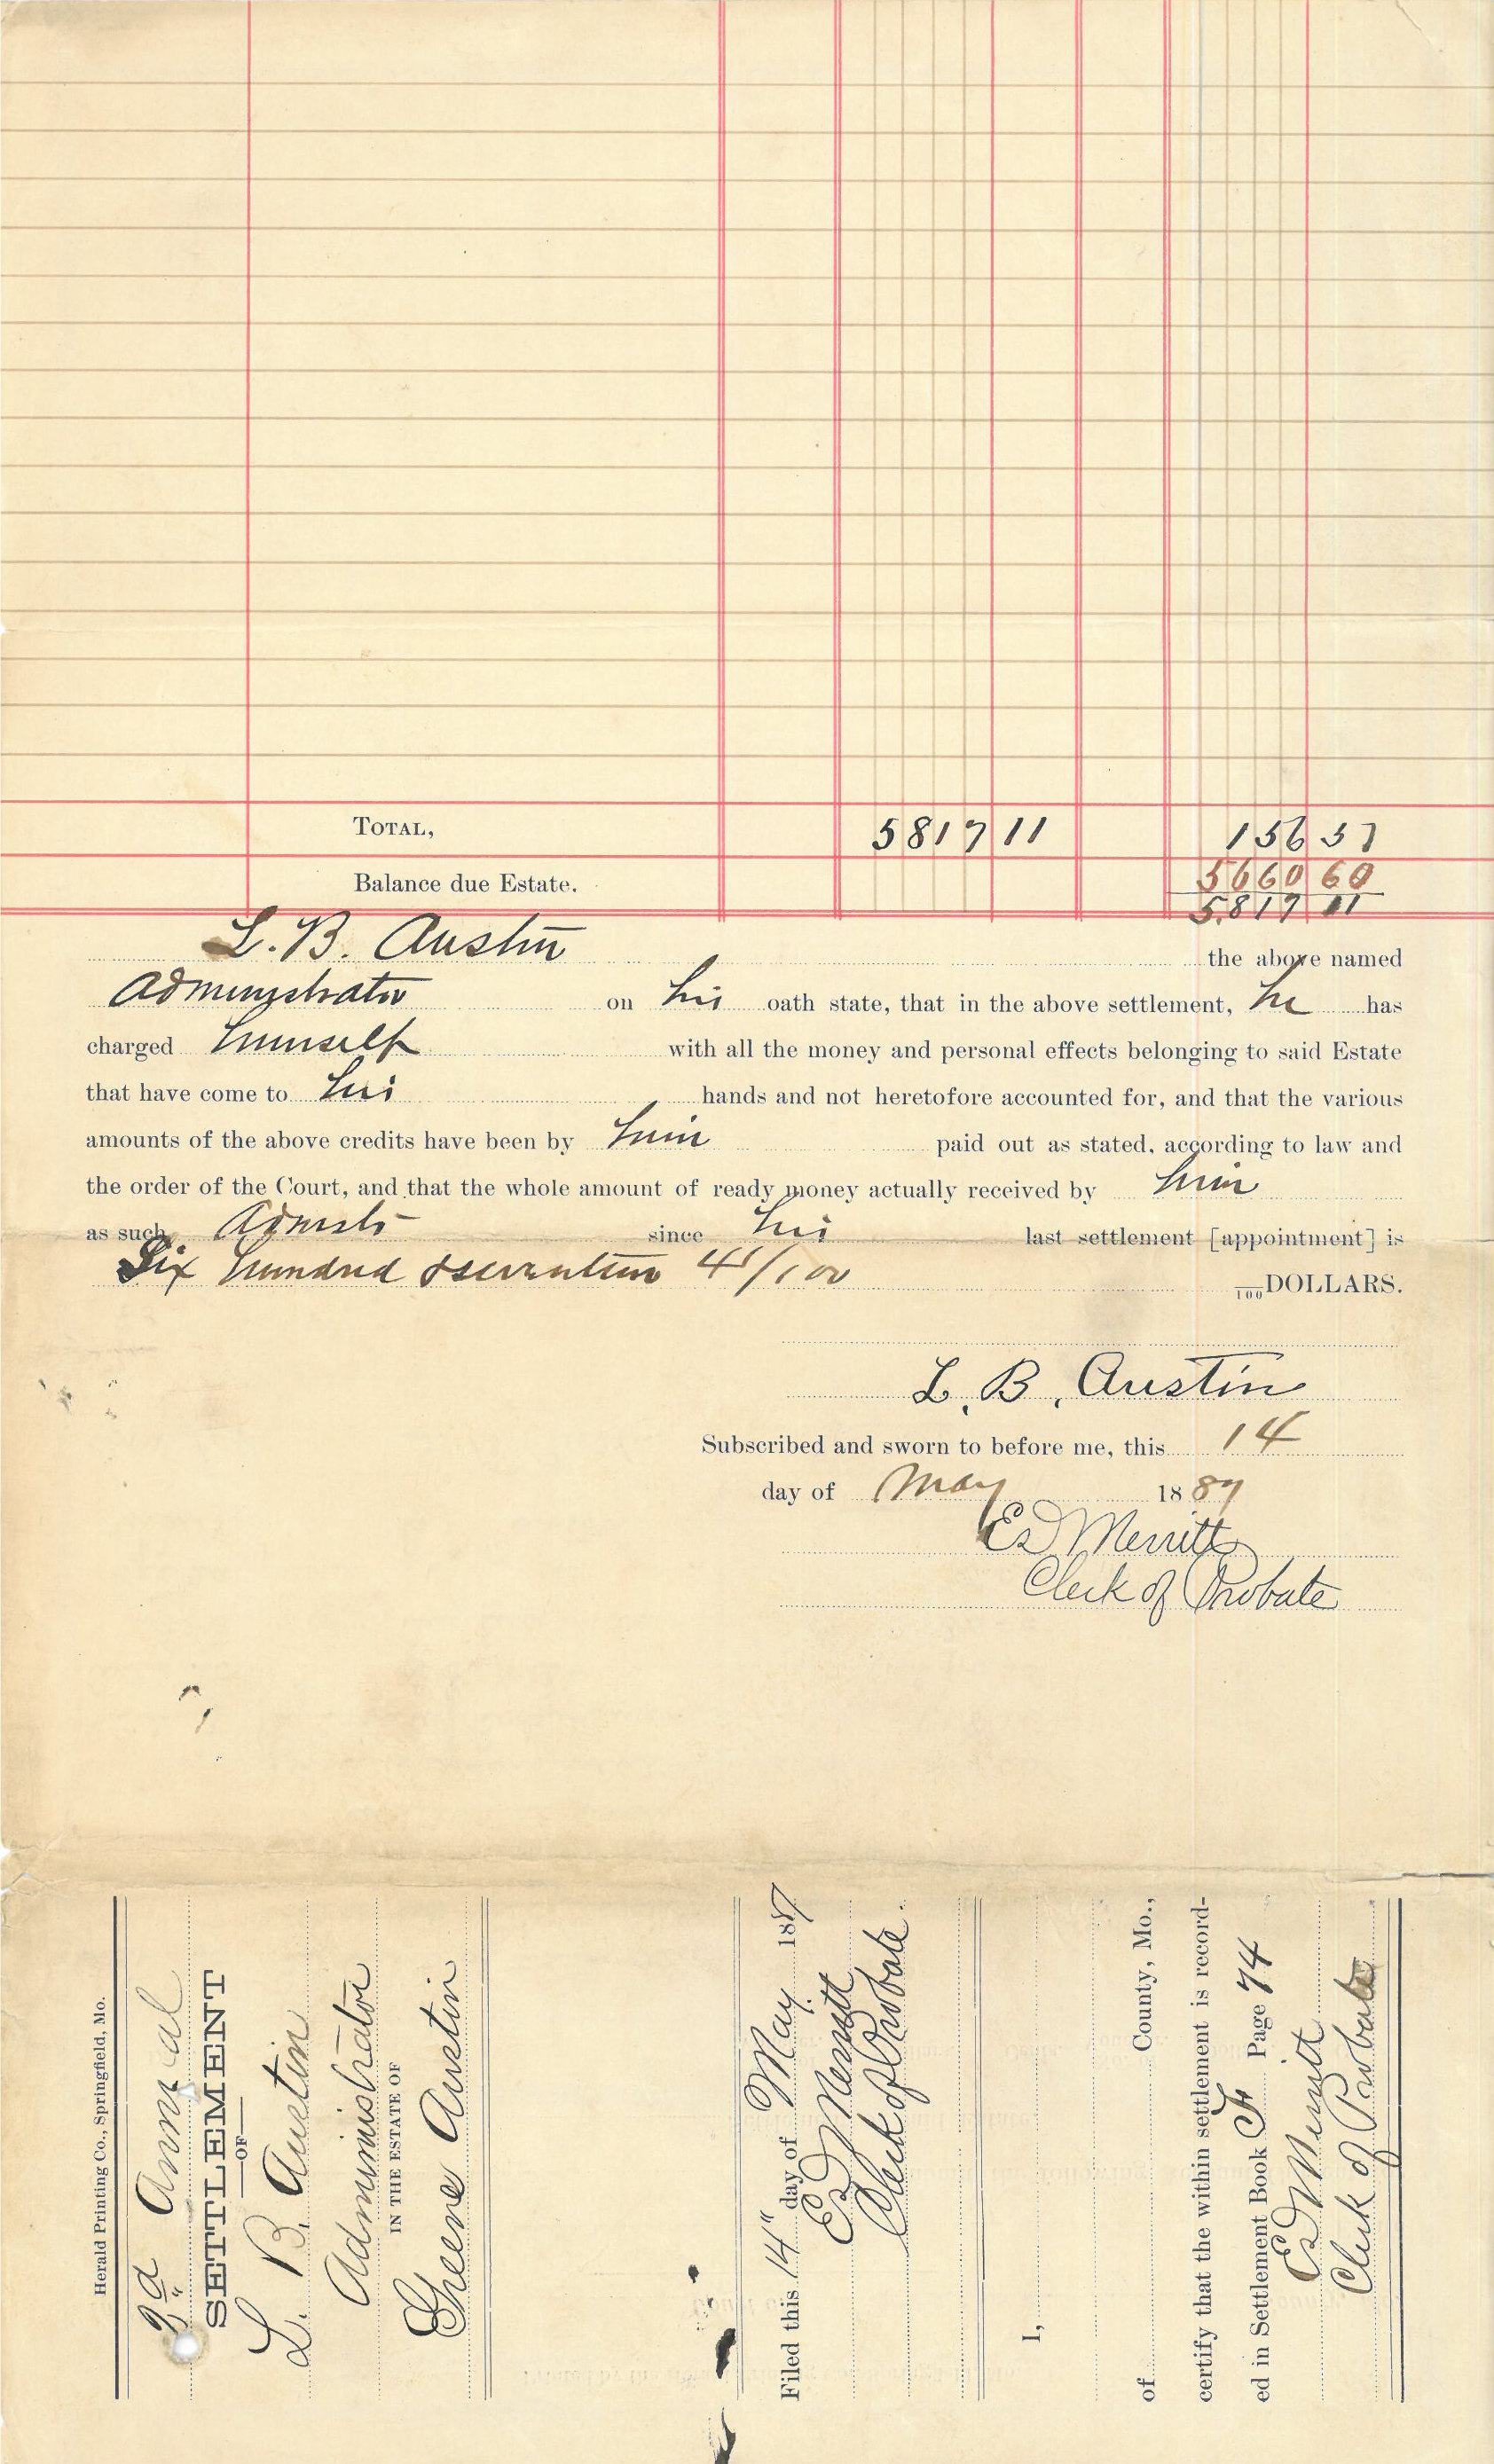 TOTAL, 5817 11 156 51
Balance due Estate. 5660 60
5817 11
L. B. Austin the above named
Administrator on his oath state, that in the above settlement, he has
charged himself with all the money and personal effects belonging to said Estate
that have come to his hands and not heretofore accounted for, and that the various
amounts of the above credits have been by him paid out as stated, according to law and
the order of the Court, and that the whole amount of ready money actually received by him
as such Admstr since his last settlement [appointment] is
Six hundred & seventeen 41/100 100 DOLLARS.
L. B. Austin
Subscribed and sworn to before me, this 14
day of May 1887
Ed Merritt
Clerk of Probate
Herald Printing Co., Springfield, Mo.
2d Annual
SETTLEMENT
OF
L. B. Austin
Administrator
IN THE ESTATE OF
Greene Austin
Filed this 14" day of May 1887
Ed Merritt
Clerk of Probate.
I,
of County, Mo.,
certify that the within settlement is record-
ed in Settlement Book F Page 74
Ed Merritt
Clerk of Probate